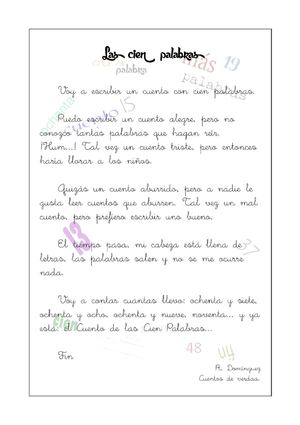 Las cien palabras
más 19
palabra
palabras
Voy a escribir un cuento con cien palabras.
ochenta
cuento 15
Puedo escribir un cuento alegre, pero no
conozco tantas palabras que hagan reír.
¡Hum...! Tal vez un cuento triste, pero entonces
haría llorar a los niños.
Quizás un cuento aburrido, pero a nadie le
gusta leer cuentos que aburren. Tal vez un mal
cuento, pero prefiero escribir uno bueno.
13
37
El tiempo pasa, mi cabeza está llena de
letras, las palabras salen y no se me ocurre
nada.
Voy a contar cuantas llevo: ochenta y siete,
ochenta y ocho, ochenta y nueve, noventa... y ya
está: El Cuento de las Cien Palabras...
cien
Fin
48
uy
A. Domínguez
Cuentos de verdad.